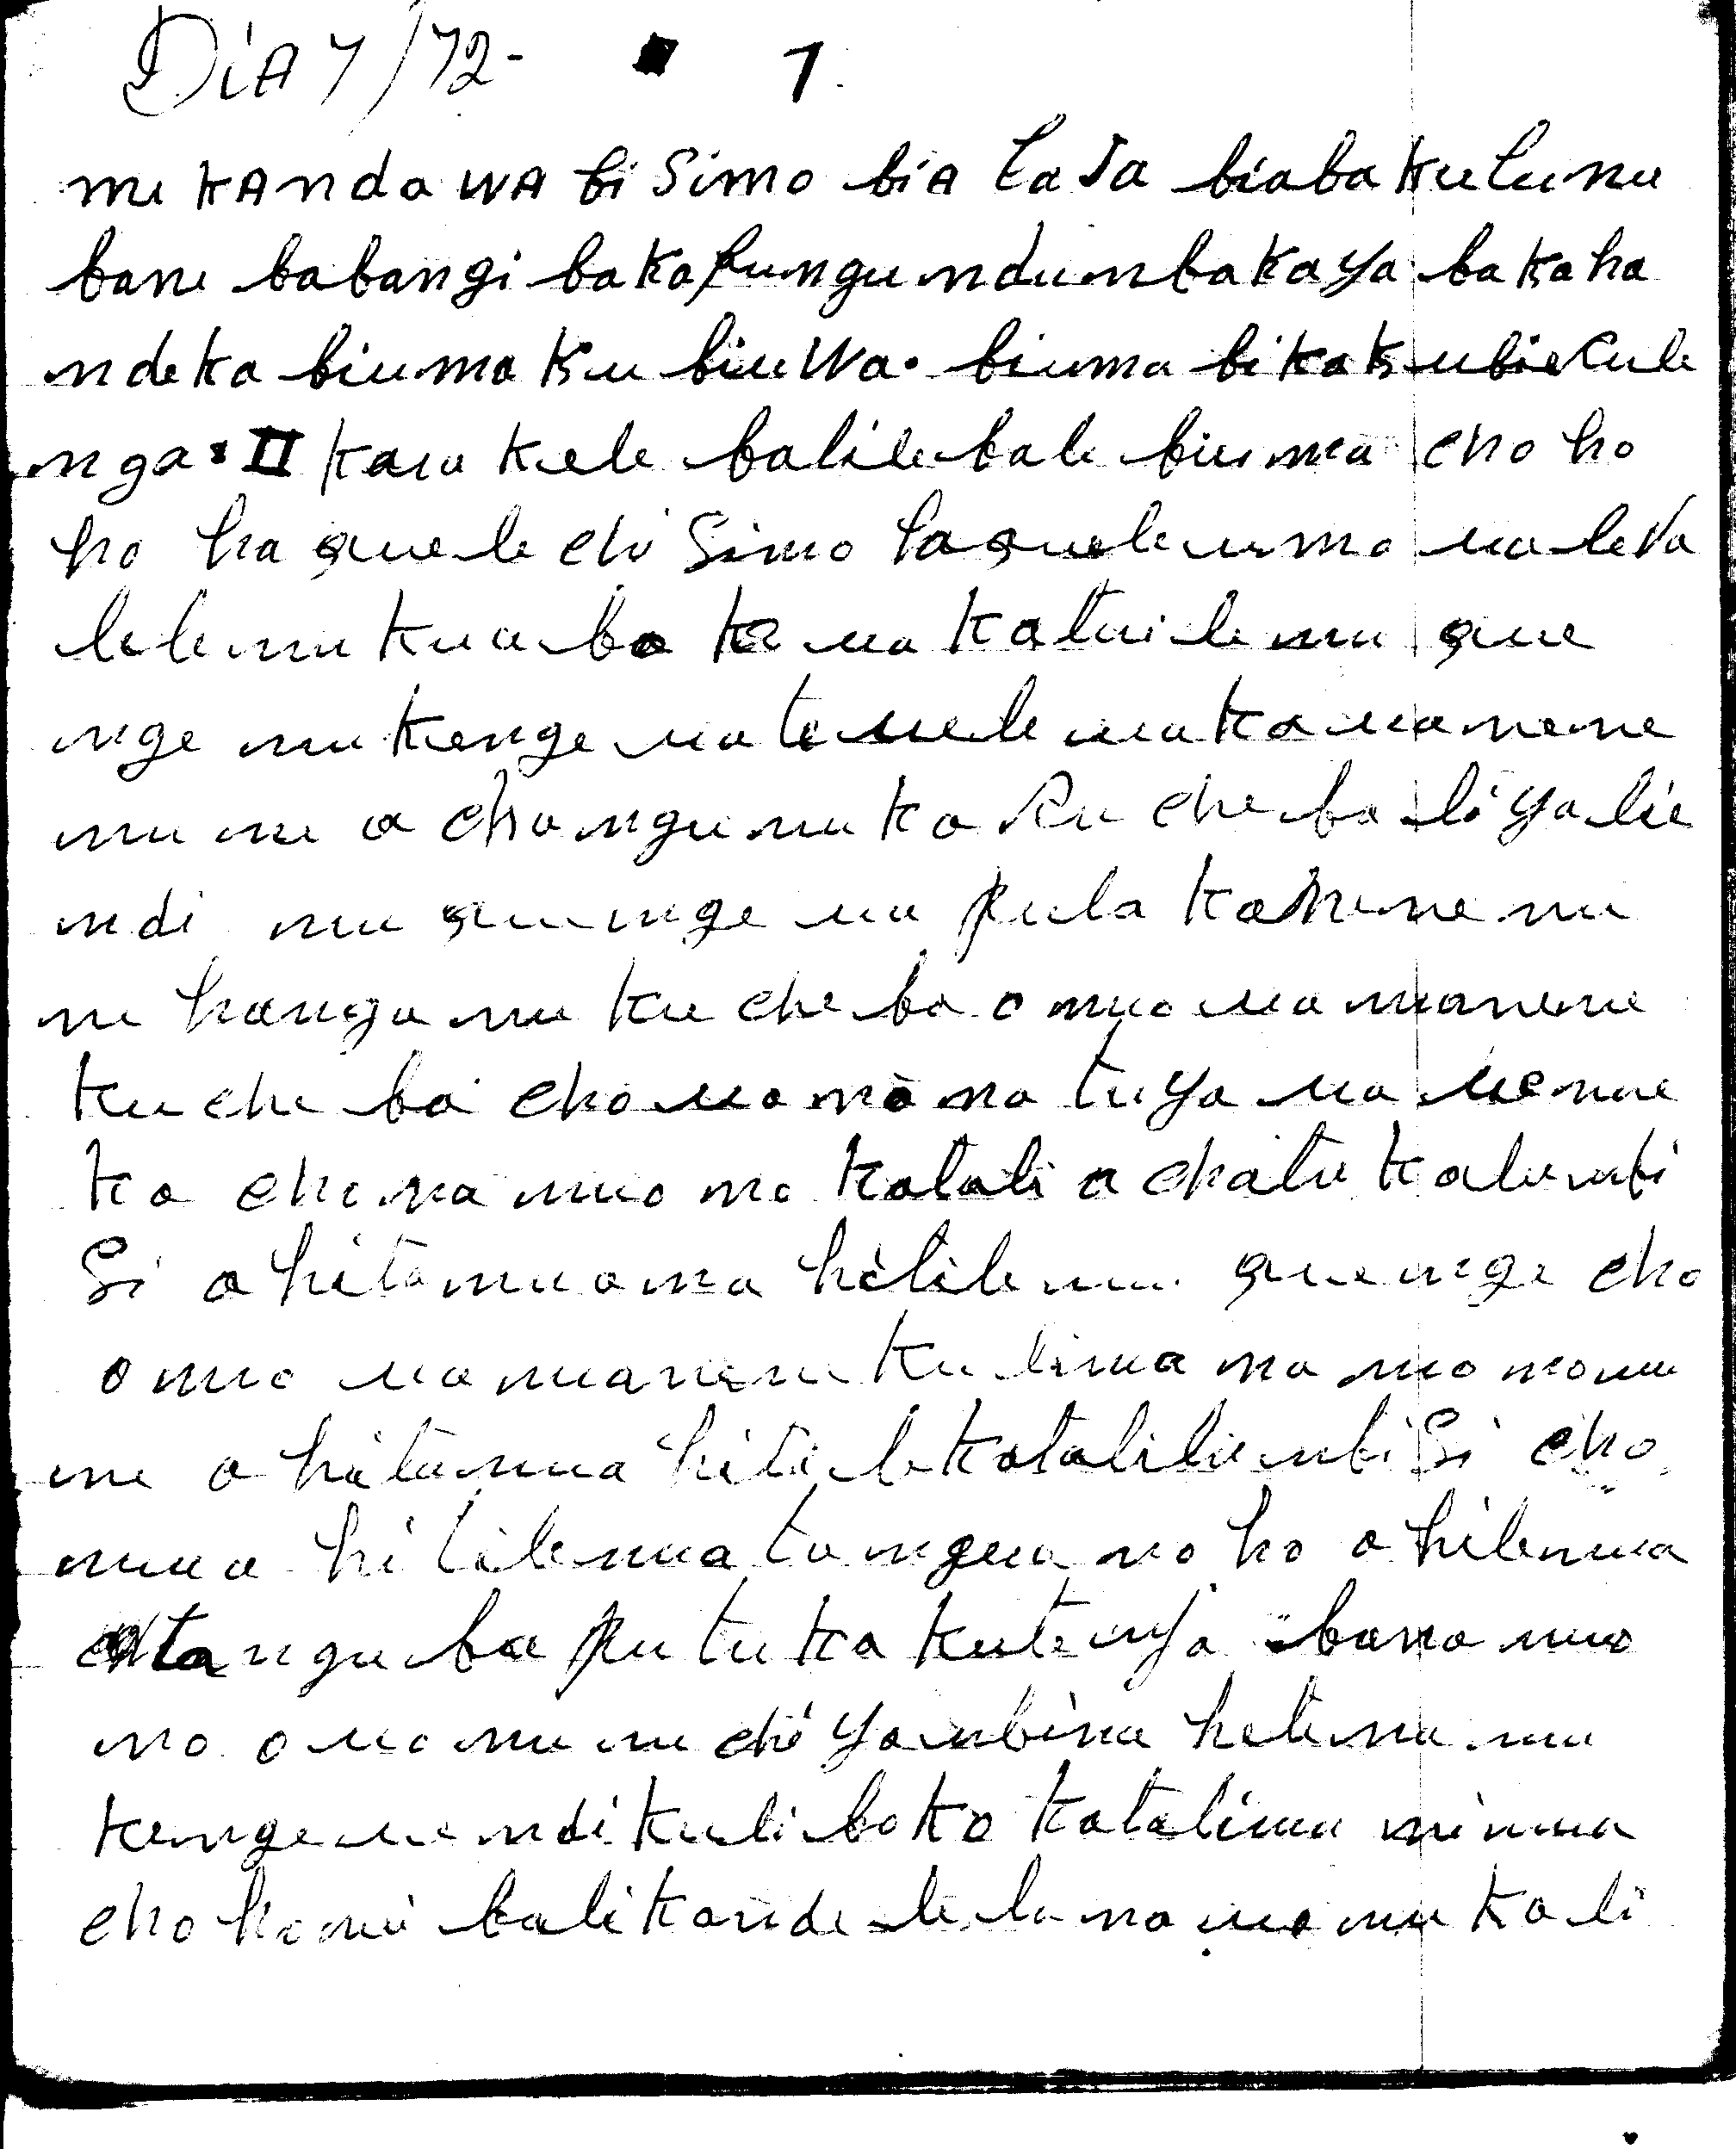 DíA 7/72- 1.
mu kAnda WA bi Simo biA LaVa biaba kulunu
bane babangi baka fungu ndumbakaya bakaha
ndeka biuma ku biuWa. biuma bikakubiecule
nga. II kalu kele balilebale biuma cho ho
ho ha quele chi Simo ha quele umo ua leva
lele mukuabo ka ua katuile mu que
nge mukenge ua temuele ua kamanene
mu mu a changunuka ku cheba li ya lie
ndi mu quenge ua pula kahenenu
nu hanga nu ku cheba omuo ua manene
ku che ba cho ua mana na tuya ua
ka chi na muo na katali a chatu kalumbi
Si a hita mua ma hitile mu quenge cho
omuo ua manene ku lima na muo manu
mu a hita mua hitile katalilie mbi Si cho
mua hi tile mua tangua no ho a hile mua
tangu ba putuka kutenya bana muo
no o ua mu nu chi yambinu hetenu mu
kenge uendi kuli baka katalima mi mua
cho ho mu balikandelela na ua mu kali